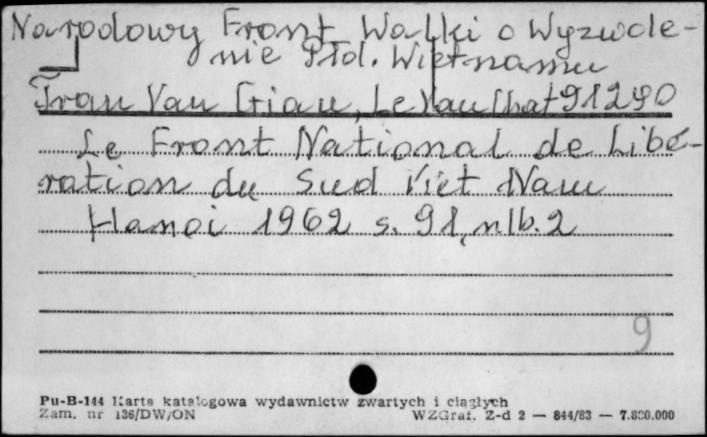 Narodowy Front Walki o Wyzwole-
nie Płd. Wietnamu
Tran Van Giau, Le Van Chat 91290
Le Front National de Libé-
ration du Sud Viet Nam
Hanoi 1962 s. 91, nlb. 2
9
Pu-B-144 Karta katalogowa wydawnictw zwartych i ciągłych
Zam. nr 136/DW/ON WZGraf. Z-d 2 — 844/83 — 7.800.000